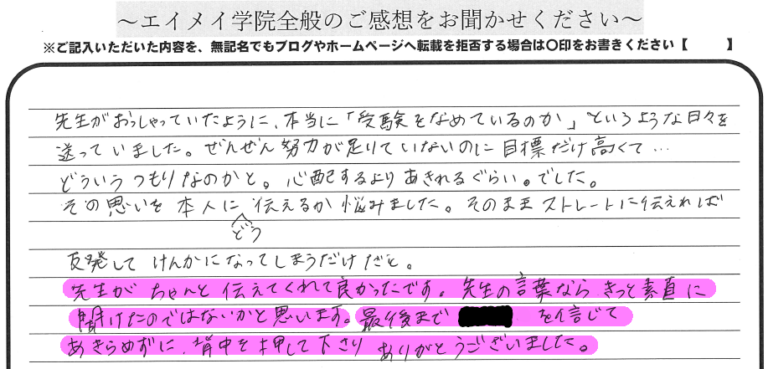 ～エイメイ学院全般のご感想をお聞かせください～
※ご記入いただいた内容を、無記名でもブログやホームページへ転載を拒否する場合は〇印をお書きください【　　】
先生がおっしゃっていたように、本当に「受験をなめているのか」というような日々を
送っていました。ぜんぜん努力が足りていないのに目標だけ高くて…
どういうつもりなのかと。心配するよりあきれるぐらい。でした。
その思いを本人にどう伝えるか悩みました。そのままストレートに伝えれば
反発してけんかになってしまうだけだと。
先生がちゃんと伝えてくれて良かったです。先生の言葉ならきっと素直に
聞けたのではないかと思います。最後まで を信じて
あきらめずに、背中を押して下さりありがとうございました。